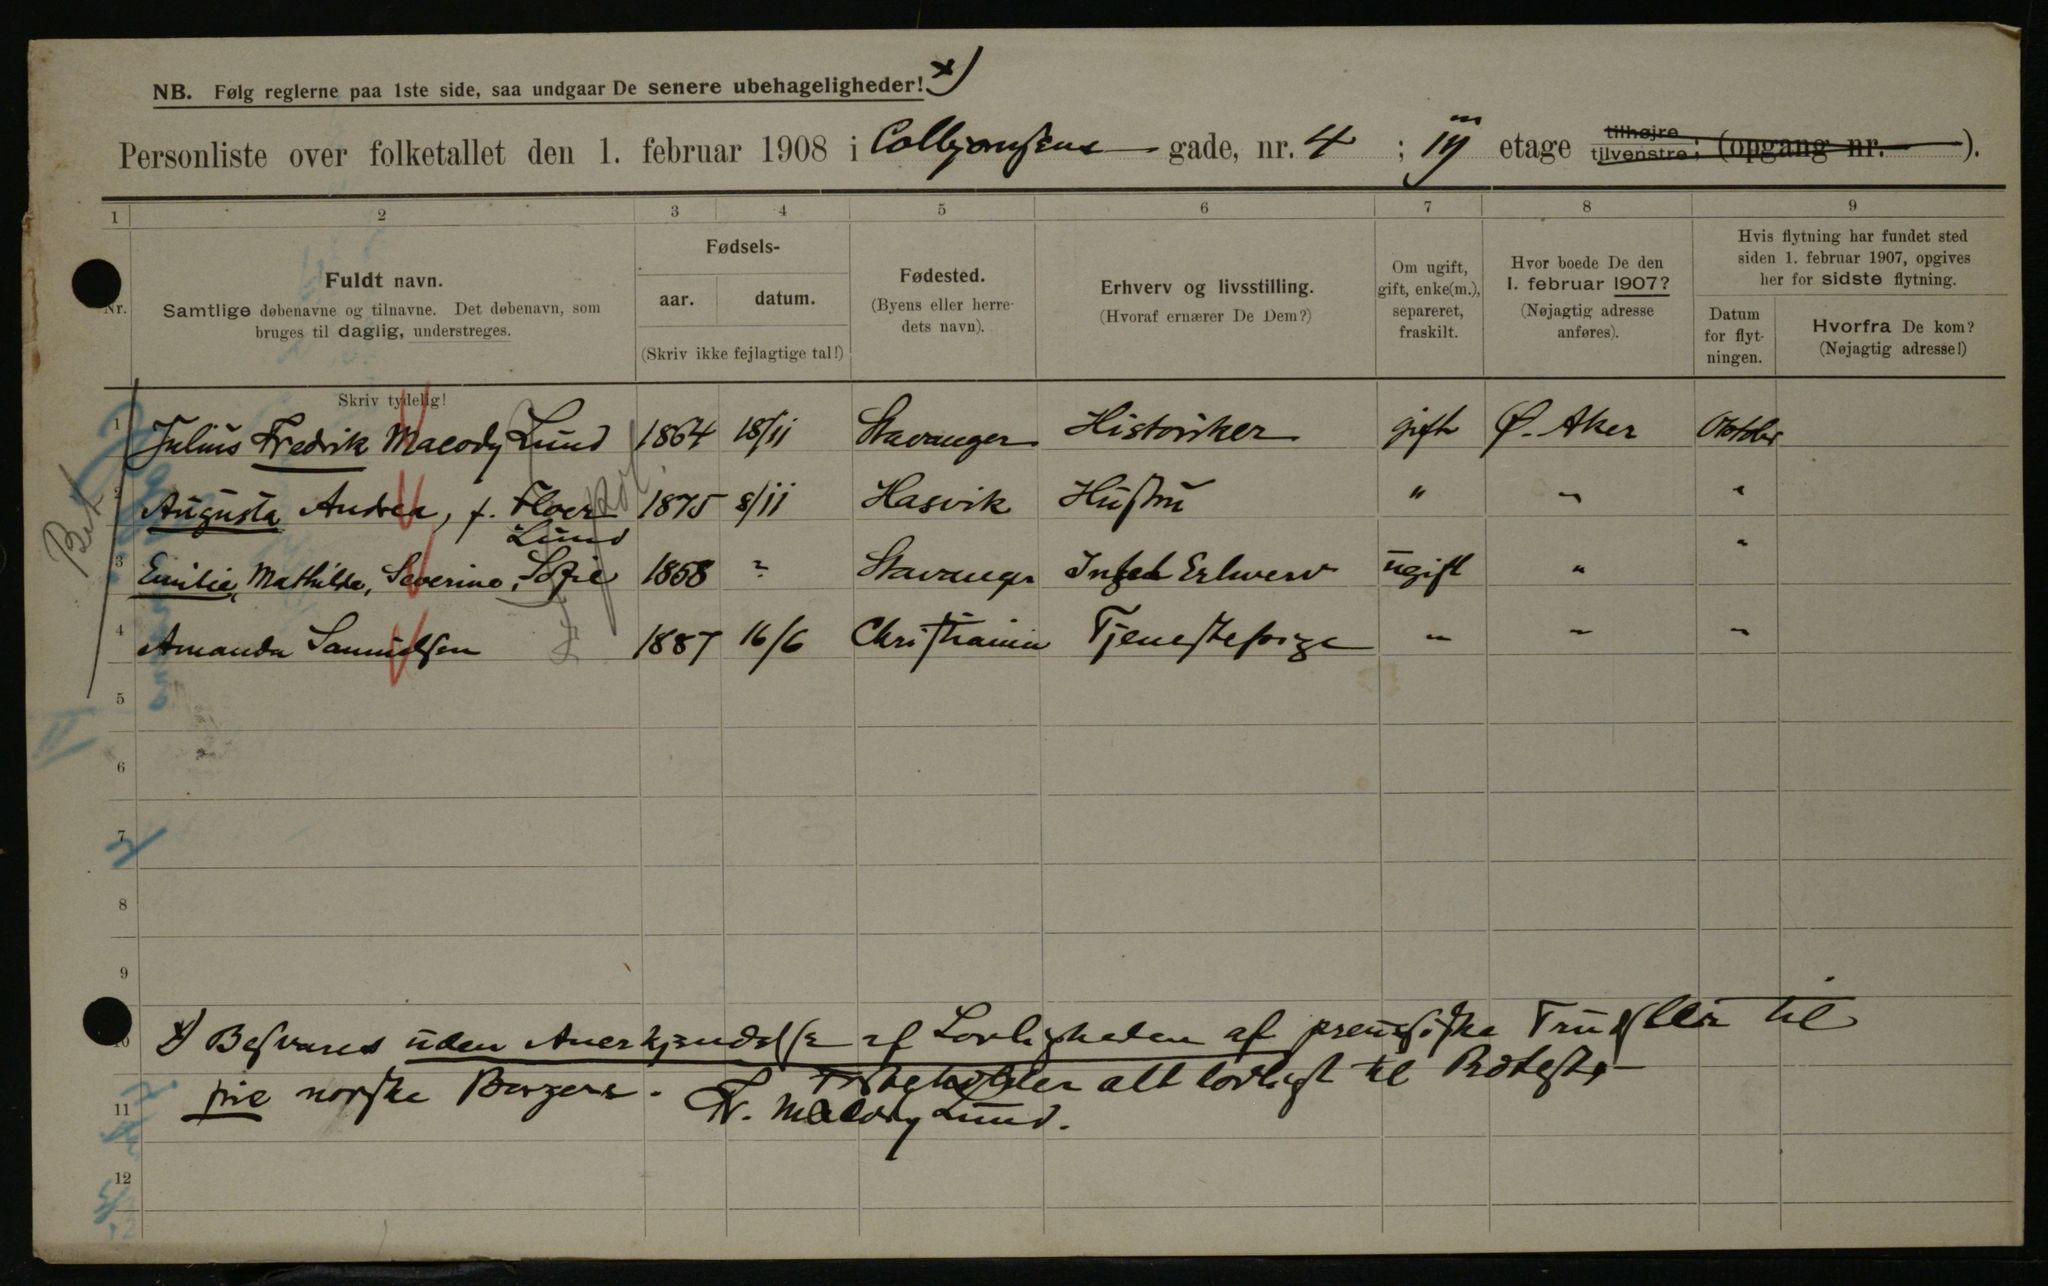 NB. Følg reglerne paa 1ste side, saa undgaar De senere ubehageligheder! x)
Personliste over folketallet den 1. februar 1908 i Colbjørnsens gade, nr. 4 ; III etage tilhøjre tilvenstre; (opgang nr. ).
1 2 3 4 5 6 7 8 9
Nr.
Fuldt navn.
Samtlige døbenavne og tilnavne. Det døbenavn, som
bruges til daglig, understreges.
Skriv tydelig!
Fødsels-
aar. datum.
(Skriv ikke fejlagtige tal!)
Fødested.
(Byens eller herre-
dets navn).
Erhverv og livsstilling.
(Hvoraf ernærer De Dem?)
Om ugift,
gift, enke(m.),
separeret,
fraskilt.
Hvor boede De den
1. februar 1907?
(Nøjagtig adresse
anføres).
Hvis flytning har fundet sted
siden 1. februar 1907, opgives
her for sidste flytning.
Datum
for flyt-
ningen.
Hvorfra De kom?
(Nøjagtig adresse!)
1 Julius Fredrik Macody Lund 1864 18/11 Stavanger Historiker gift Ø. Aker Oktober
2 Augusta Andrea, f. Floer 1875 8/11 Hasvik Hustru " " "
Lund
3 Emilie, Mathilde, Severine, Sofie 1858 ? Stavanger Intet Erhverv ugift " "
4 Amanda Samuelsen 1887 16/6 Christiania Tjenestepige " " "
5
6
7
8
9
10
11
12
x) Besvares uden Anerkjendelse af Lovligheden af preussiske Trudsler til
frie norske Borgere. Forbeholder alt lovligt til Protest.
Fr. Macody Lund.